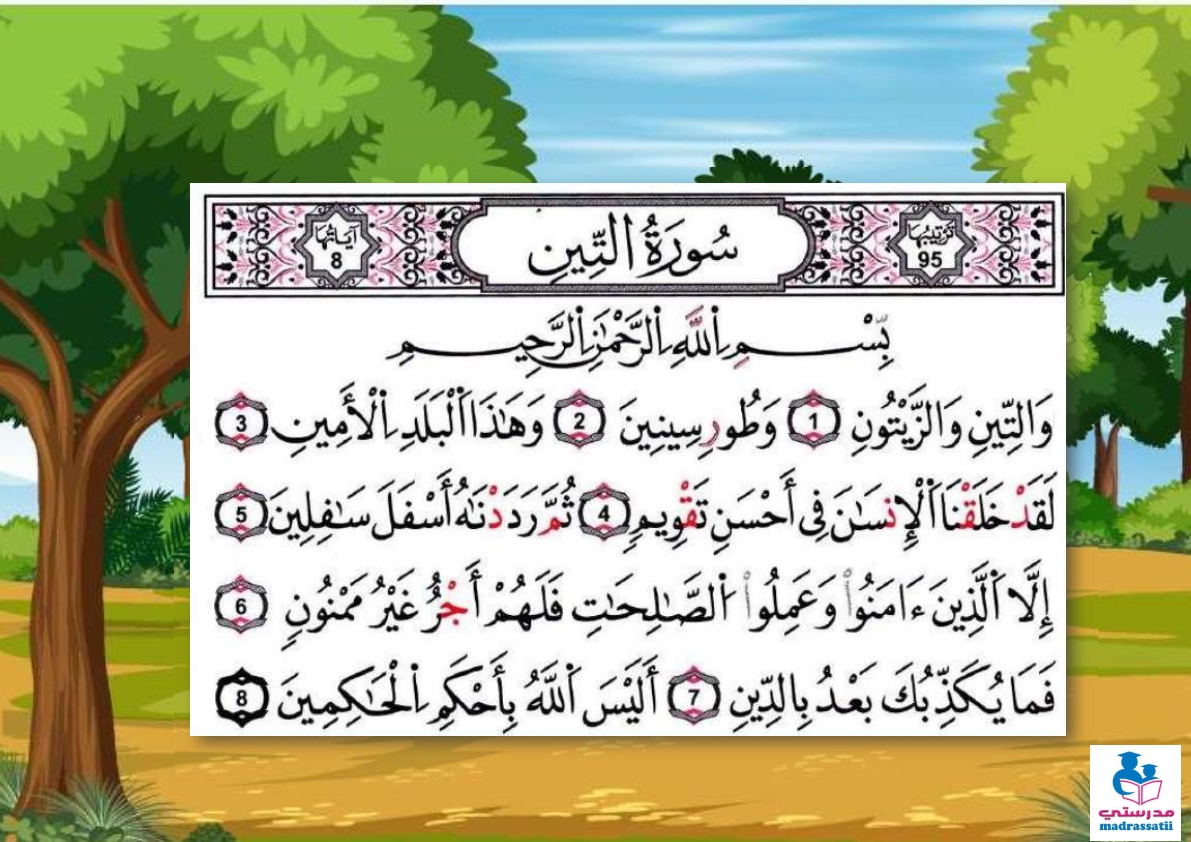 ترتيبها 95
سُورَةُ التِّينِ
آياتها 8
بِّسْمِ اِ۬للَّهِ اِ۬لرَّحْمَٰنِ اِ۬لرَّحِيمِ
وَالتِّينِ وَالزَّيْتُونِ 1 وَطُورِ سِينِينَ 2 وَهَٰذَا اَ۬لْبَلَدِ اِ۬لْأَمِينِ 3
لَقَدْ خَلَقْنَا اَ۬لْإِنسَٰنَ فِى أَحْسَنِ تَقْوِيمٍ 4 ثُمَّ رَدَدْنَٰهُ أَسْفَلَ سَٰفِلِينَ 5
إِلَّا اَ۬لَّذِينَ ءَامَنُواْ وَعَمِلُواْ اُ۬لصَّٰلِحَٰتِ فَلَهُمْ أَجْرٌ غَيْرُ مَمْنُونٍ 6
فَمَا يُكَذِّبُكَ بَعْدُ بِالدِّينِ 7 أَلَيْسَ اَ۬للَّهُ بِأَحْكَمِ اِ۬لْحَٰكِمِينَ 8
مدرستي
madrassatii